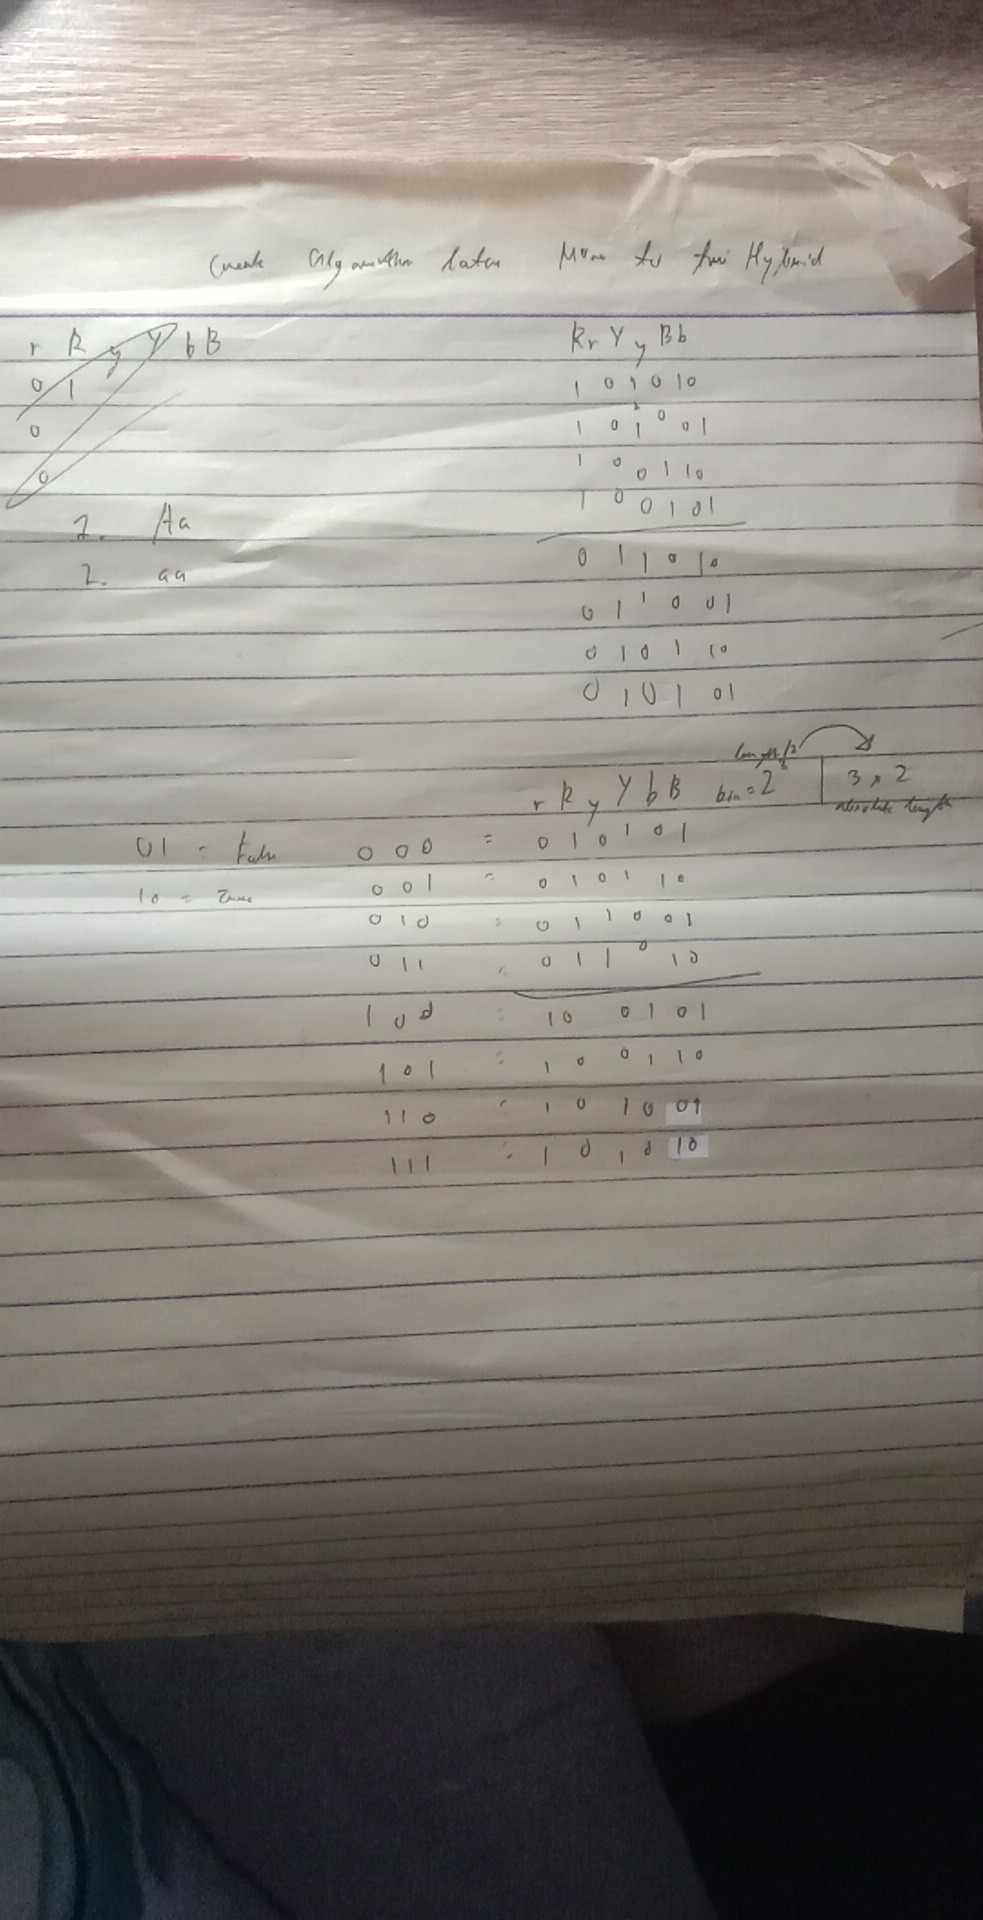 Create Algorithm later Mono to tri Hybrid
r R y Y b B
0 1
0
0
1. Aa
2. aa
R r Y y B b
1 0 1 0 1 0
1 0 1 0 0 1
1 0 0 1 1 0
1 0 0 1 0 1
0 1 1 0 1 0
0 1 1 0 0 1
0 1 0 1 1 0
0 1 0 1 0 1
length/2
r R y Y b B bin = 2 3 x 2
absolute length
01 = False 0 0 0 = 0 1 0 1 0 1
10 = 0 0 1 = 0 1 0 1 1 0
0 1 0 = 0 1 1 0 0 1
0 1 1 = 0 1 1 0 1 0
1 0 0 = 1 0 0 1 0 1
1 0 1 = 1 0 0 1 1 0
1 1 0 = 1 0 1 0 0 1
1 1 1 = 1 0 1 0 1 0